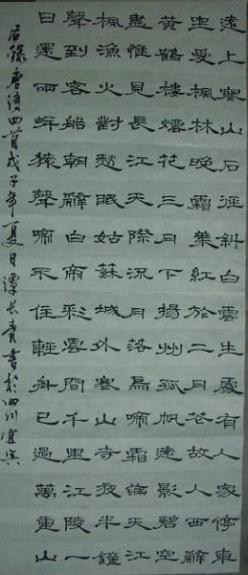 遠上寒山石徑斜白雲生處有人家停車
坐愛楓林晚霜葉紅於二月花故人西辭
黃鶴樓煙花三月下揚州孤帆遠影碧空
盡惟見長江天際流月落烏啼霜滿天江
楓漁火對愁眠姑蘇城外寒山寺夜半鐘
聲到客船朝辭白帝彩雲間千里江陵一
日還兩岸猿聲啼不住輕舟已過萬重山
右錄唐詩四首戊子年夏日譚長青書於四川宜賓